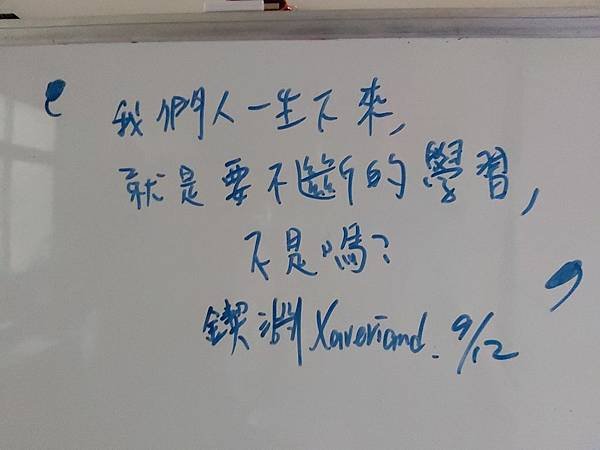 我們人一生下來,
就是要不斷的學習,
不是嗎?
鍥淵 Xaveriamd. 9/12